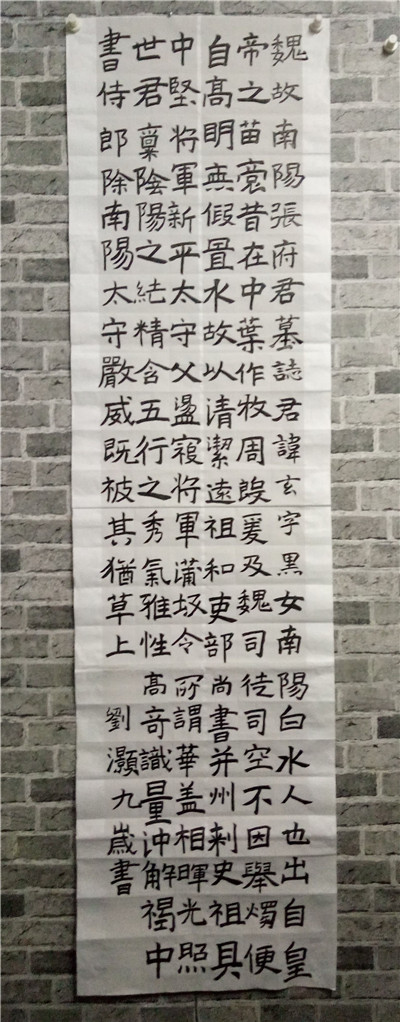 魏故南陽張府君墓誌君諱玄字黑女南陽白水人也出自皇
帝之苗裔昔在中葉作牧周殷爰及魏司徒司空不因舉燭便
自高明無假置水故以清潔遠祖和吏部尚書并州刺史祖具
中堅將軍新平太守父盪寇將軍蒲坂令所謂華蓋相暉光照
世君稟陰陽之純精含五行之秀氣雅性高奇識量沖解褐中
書侍郎除南陽太守嚴威既被其猶草上
劉灝九歲書